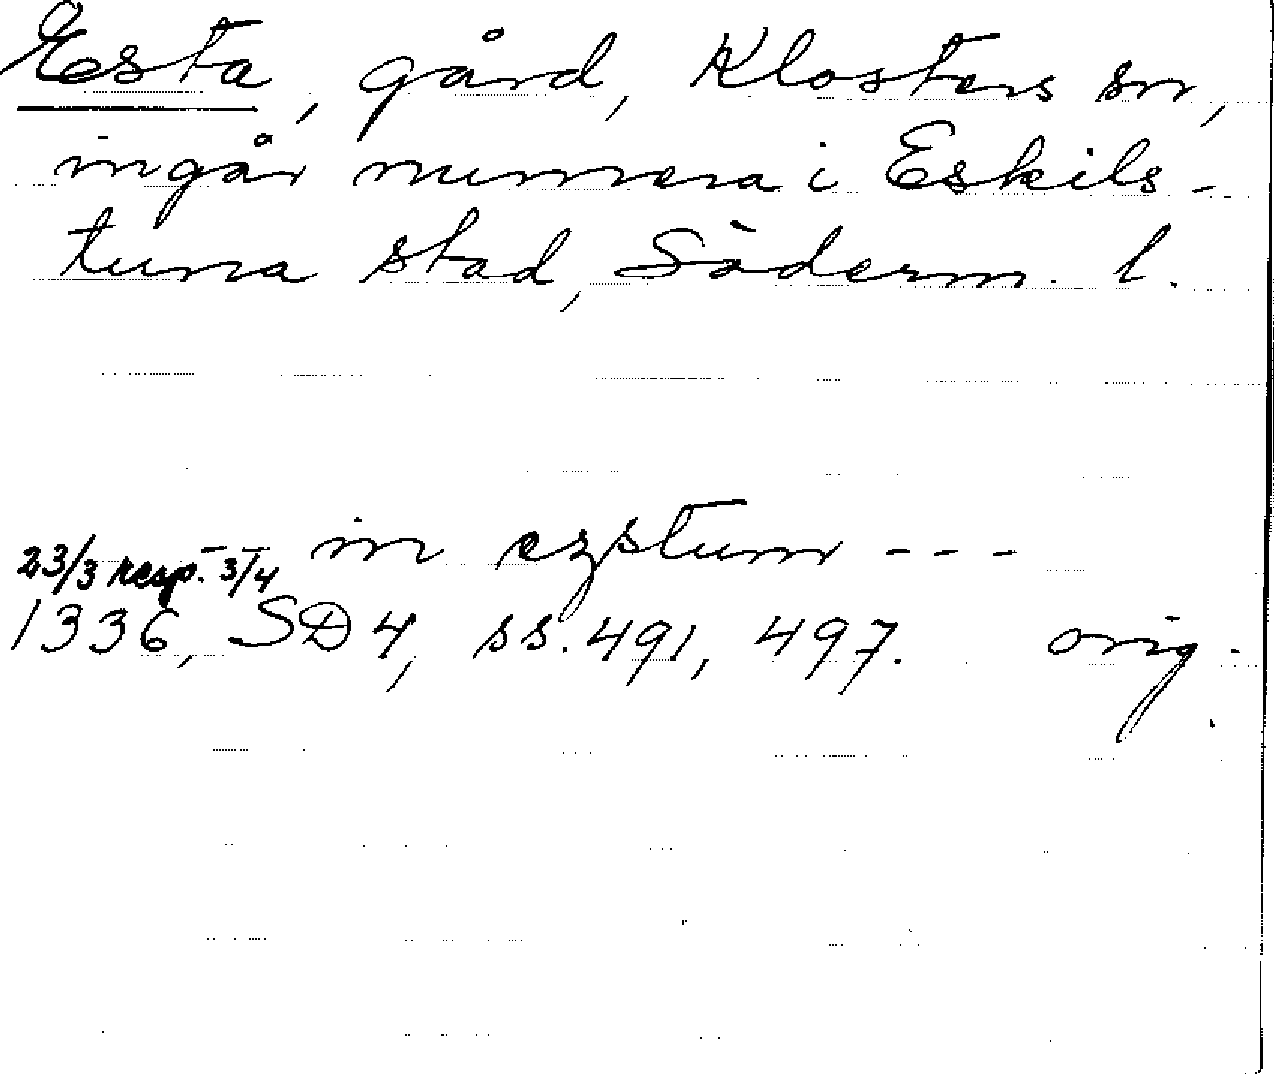 Esta, gård, Klosters sn,
ingår numera i Eskils-
tuna stad, Söderm. l.
--- in ezstum ---
23/3 resp. 3/4
1336, SD 4, ss. 491, 497. orig.